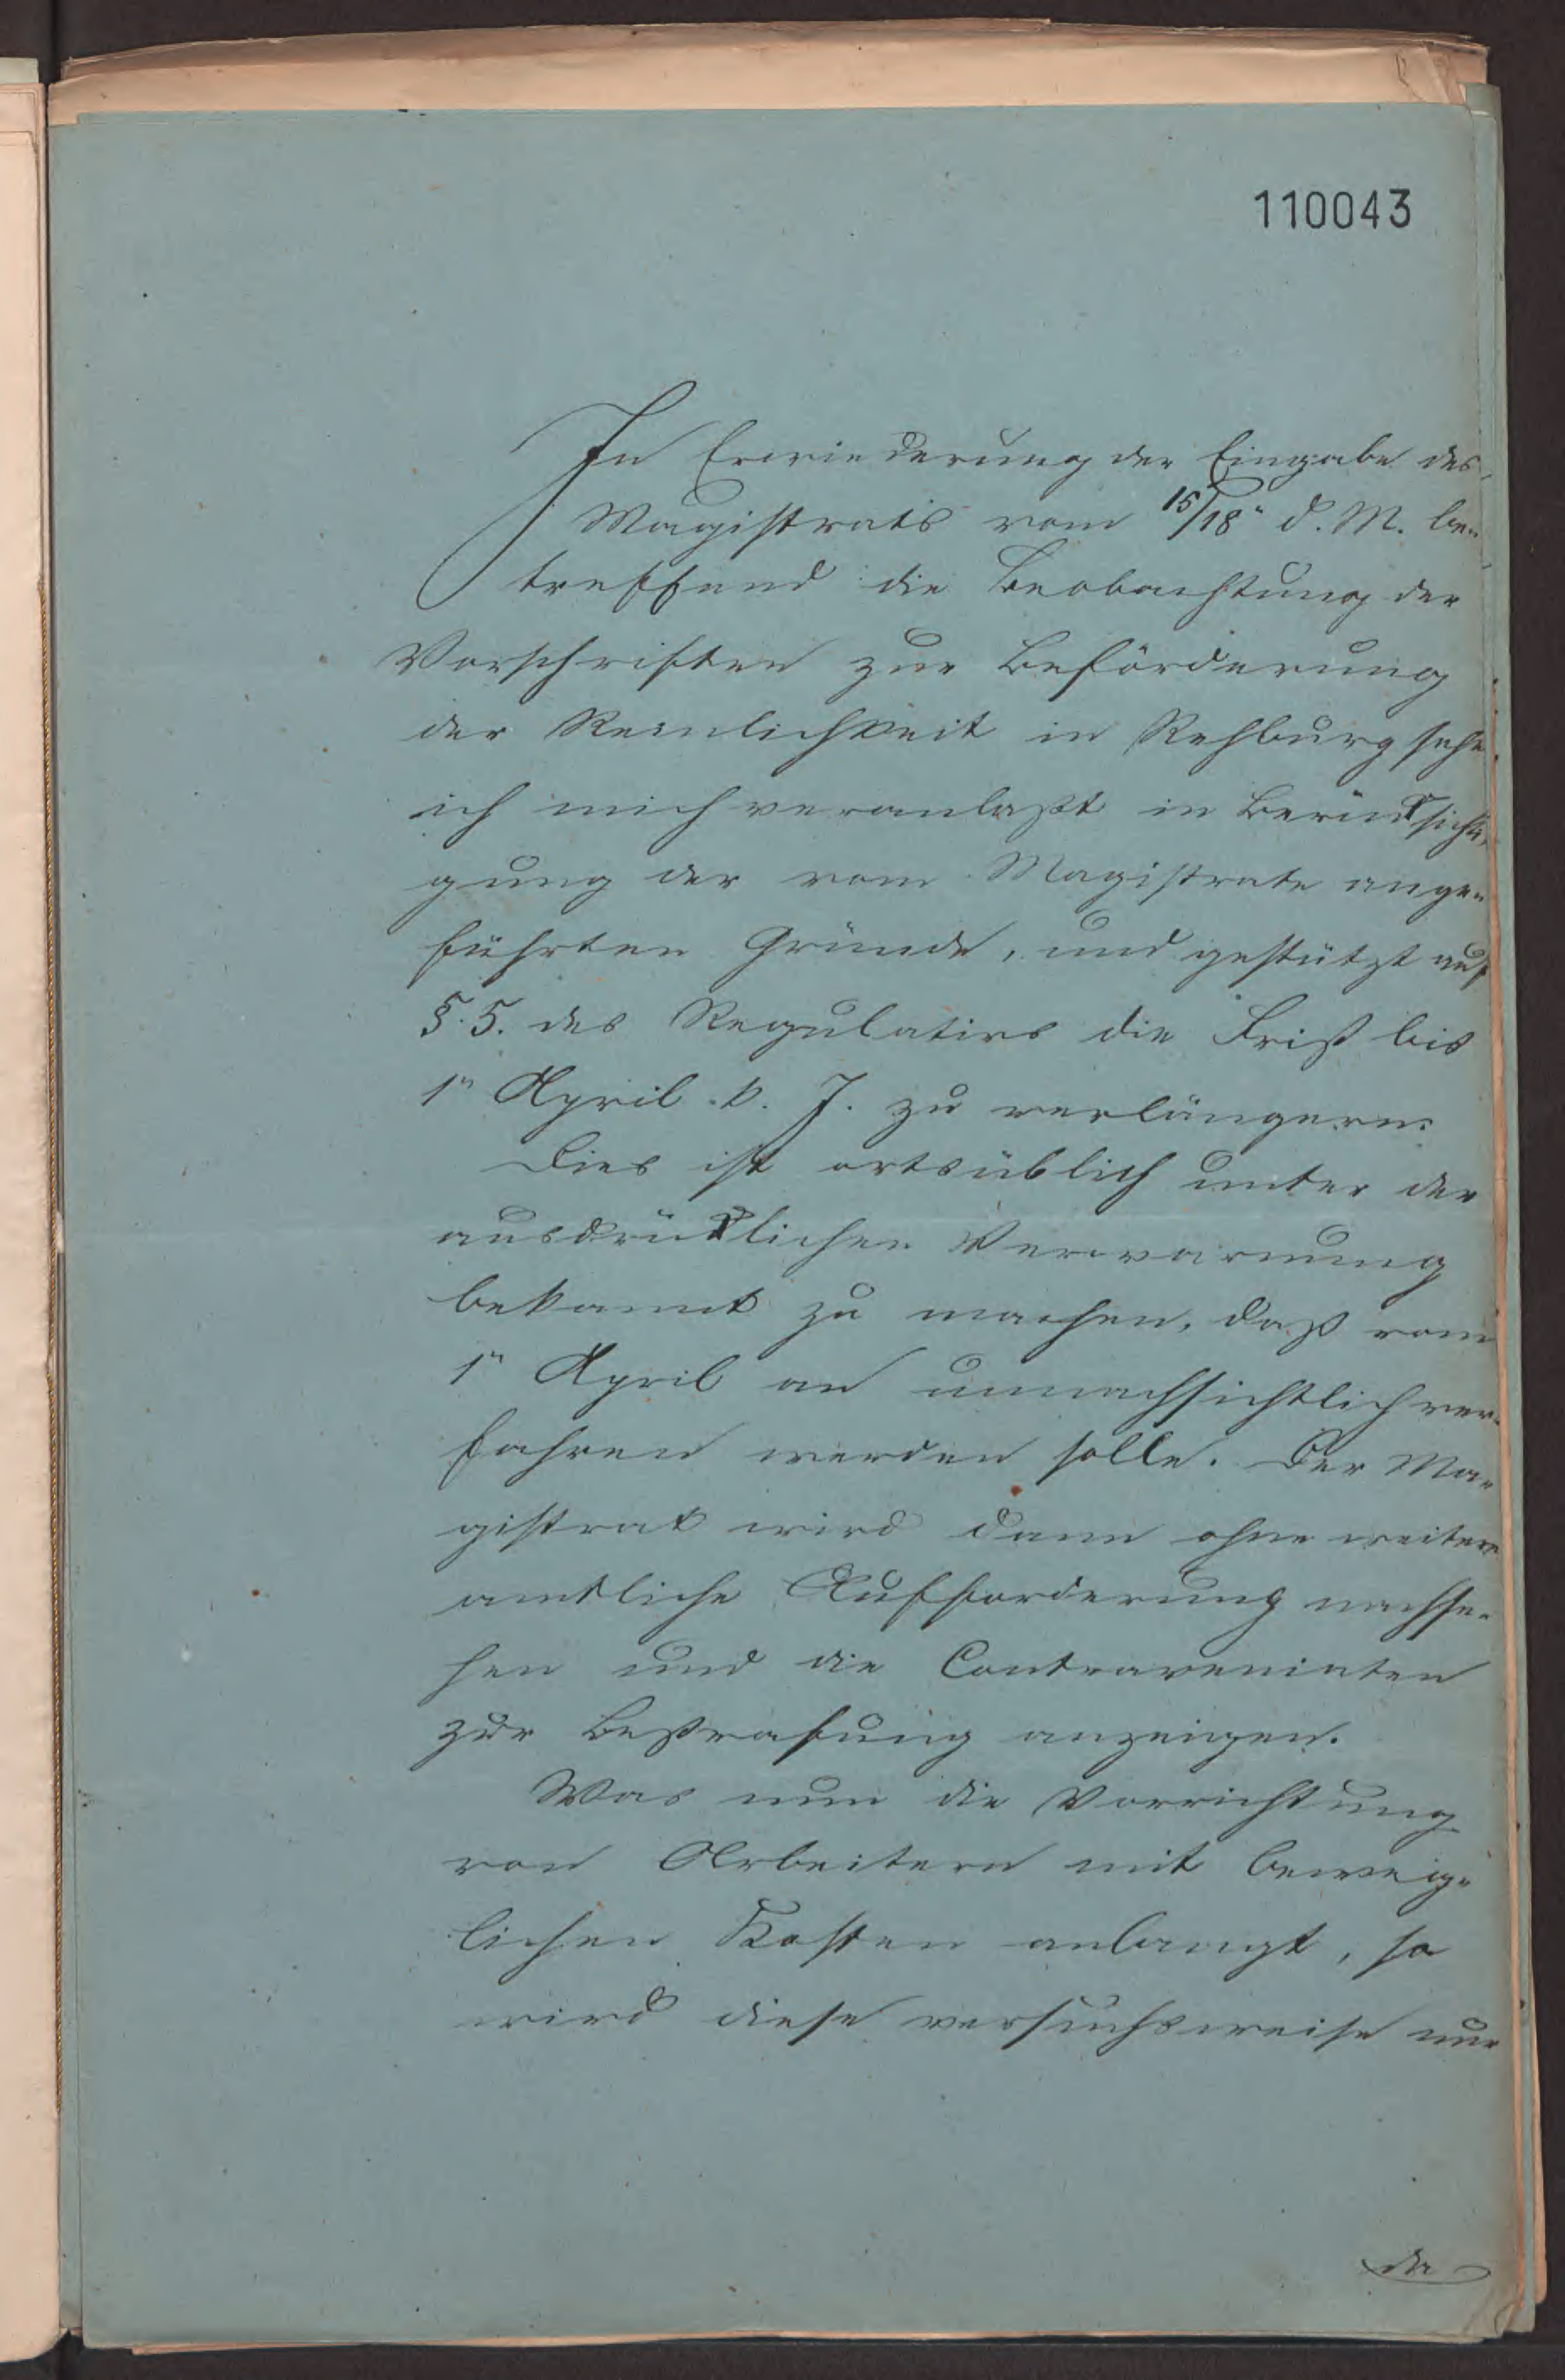 110043
In Erwiederung der Eingabe des
Magistrats vom 15/18" d. M. be-
treffend die Beobachtung der
Vorschriften zur Beförderung
der Reinlichkeit in Rehburg sehe
ich mich veranlaßt in Berücksichti-
gung der vom Magistrate ange-
führten Gründe, und gestützt auf
§. 5. des Regulativs die Frist bis
1" April k. J. zu verlängern.
Dies ist ortsüblich unter der
ausdrücklichen Verwarnung
bekannt zu machen, daß vom
1" April an unnachsichtlich ver-
fahren werden solle. Der Ma-
gistrat wird dann ohne weitere
amtliche Aufforderung nachse-
hen und die Contravenienten
zur Bestrafung anzeigen.
Was nun die Vorrichtung
von Abtritten mit beweg-
lichen Kasten anlangt, so
wird diese versuchsweise nur
da